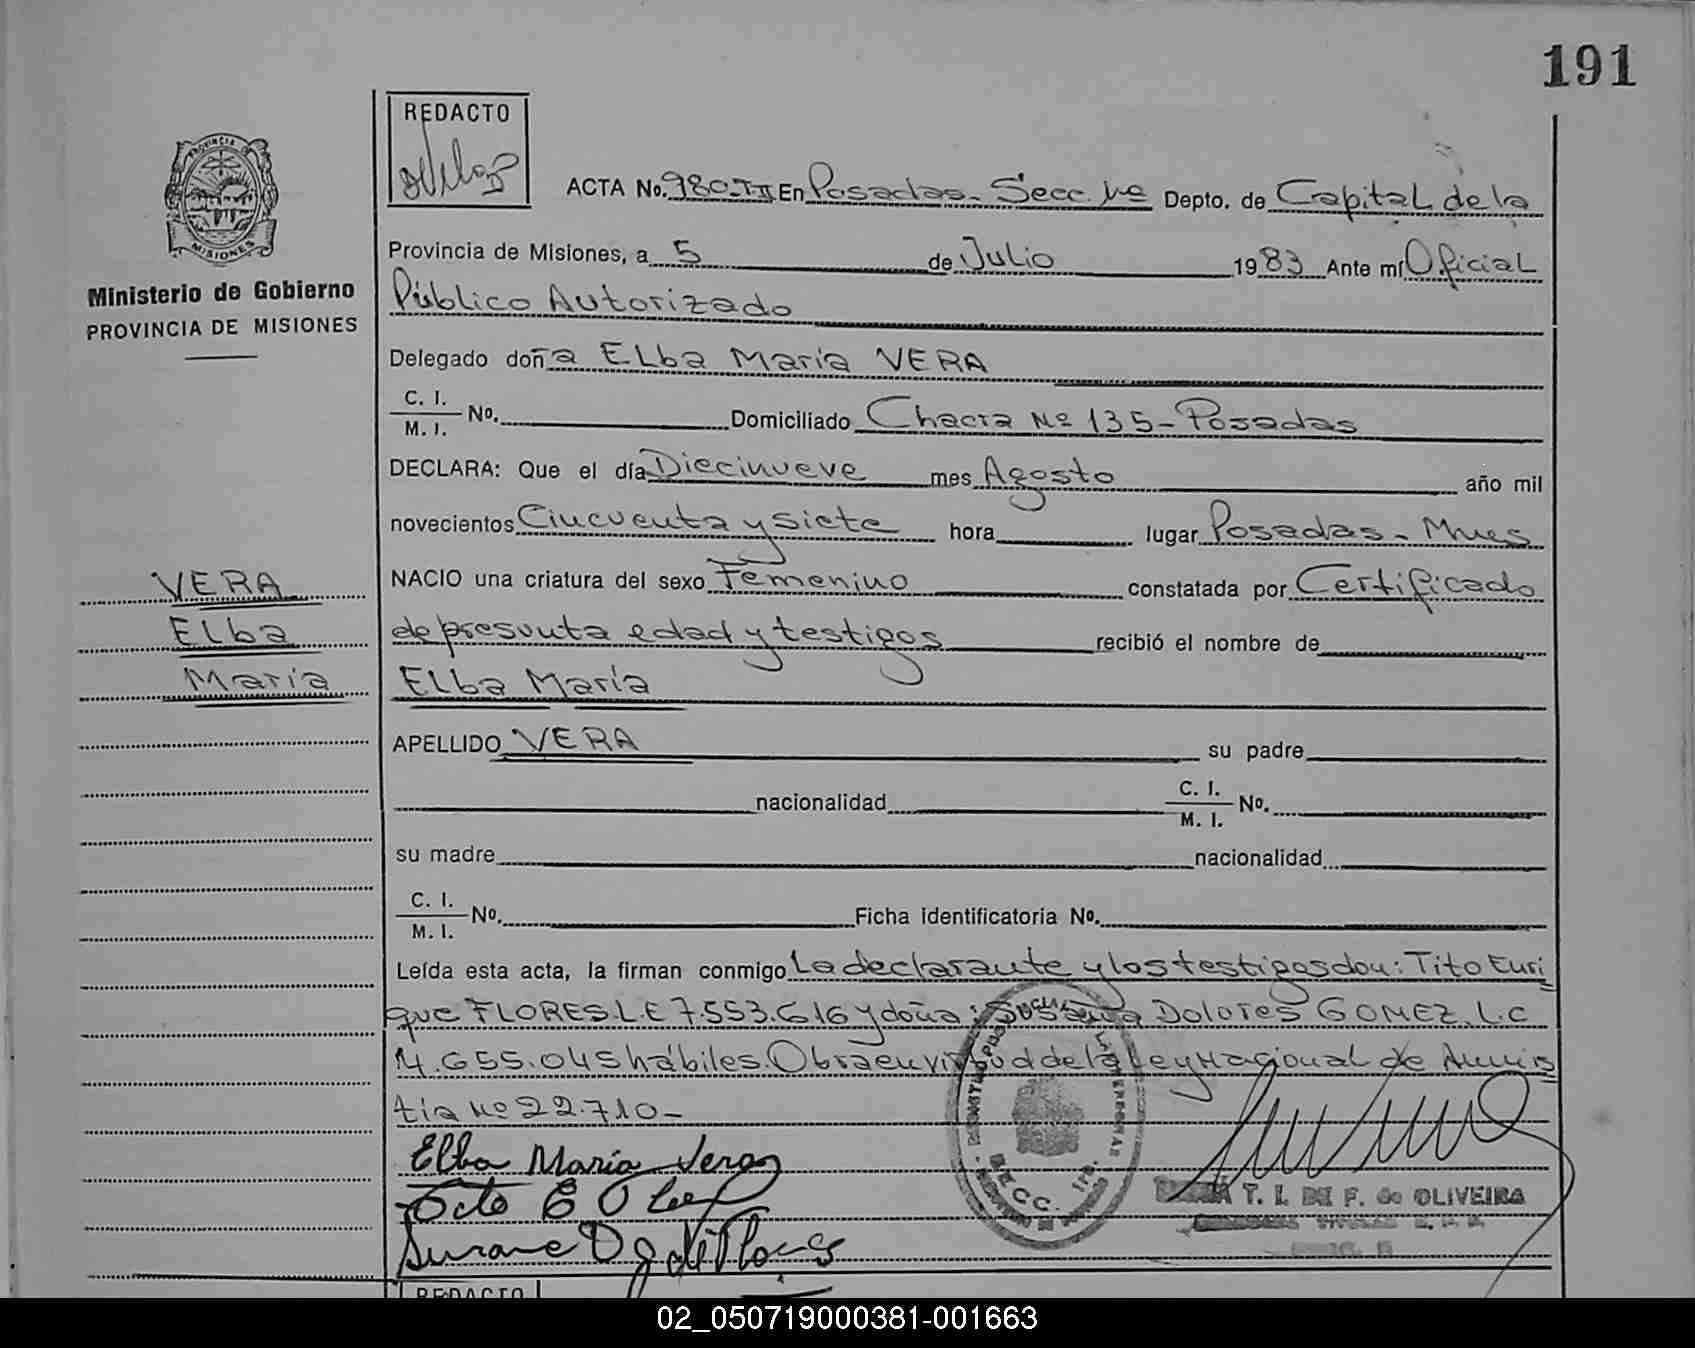 191
REDACTO
ACTA No. 980-TII En Posadas- Secc. 1ra Depto. de Capital de la
PROVINCIA DE
MISIONES
Provincia de Misiones, a 5 de Julio 1983 Ante mí Oficial
Ministerio de Gobierno
PROVINCIA DE MISIONES
Público Autorizado
Delegado doña Elba María VERA
C. I.
M. I. No. Domiciliado Chacra Nº 135- Posadas
DECLARA: Que el día Diecinueve mes Agosto año mil
novecientos Cincuenta y siete hora lugar Posadas- Mnes
NACIO una criatura del sexo Femenino constatada por Certificado
VERA
Elba
María
de presunta edad y testigos recibió el nombre de
Elba María
APELLIDO VERA su padre
nacionalidad C. I.
M. I. No.
su madre nacionalidad
C. I.
M. I. No. Ficha identificatoria No.
Leída esta acta, la firman conmigo La declarante y los testigos don: Tito Enri
que FLORES L.E 7.553.616 y doña: Susana Dolores GOMEZ. L.C
4.655.045 hábiles. Obra en virtud de la Ley Nacional de Amnis
tía Nº 22.710-
Elba María Vera
T. I. DE F. de OLIVEIRA
SECC. 1ra.
REDACTO
02_050719000381-001663